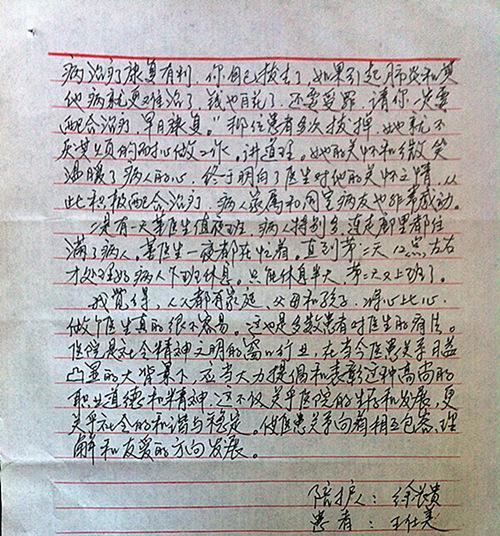 病治疗康复有利，你自己拔去了，如果引起肺炎和其
他病就更难治了，钱也白花了，还需受罪，请你一定要
配合治疗，早日康复。"那位患者多次拔掉，她就不
厌其烦的耐心做工作。讲道理。她的关怀和微笑
温暖了病人的心，终于明白了医生对他的关怀之情，从
此积极配合治疗，病人家属和同室病友也非常感动。
二是有一天某医生值夜班，病人特别多，连走廊里都住
满了病人。某医生一夜都在忙着。直到第二天12点左右
才处理好病人下班休息。只能休息半天，第二天又上班了。
我觉得，人人都有家庭、父母和孩子，将心比心，
做个医生真的很不容易。这也是多数患者对医生的看法。
医院是社会精神文明的窗口行业，在当今医患关系日益
凸显的大背景下，应当大力提倡和表彰这种高尚的
职业道德和精神，这不仅关乎医院的生存和发展，更
关乎社会的和谐与稳定。使医患关系向着相互包容、理
解和友爱的方向发展。
陪护人：徐贵
患者：王仕美